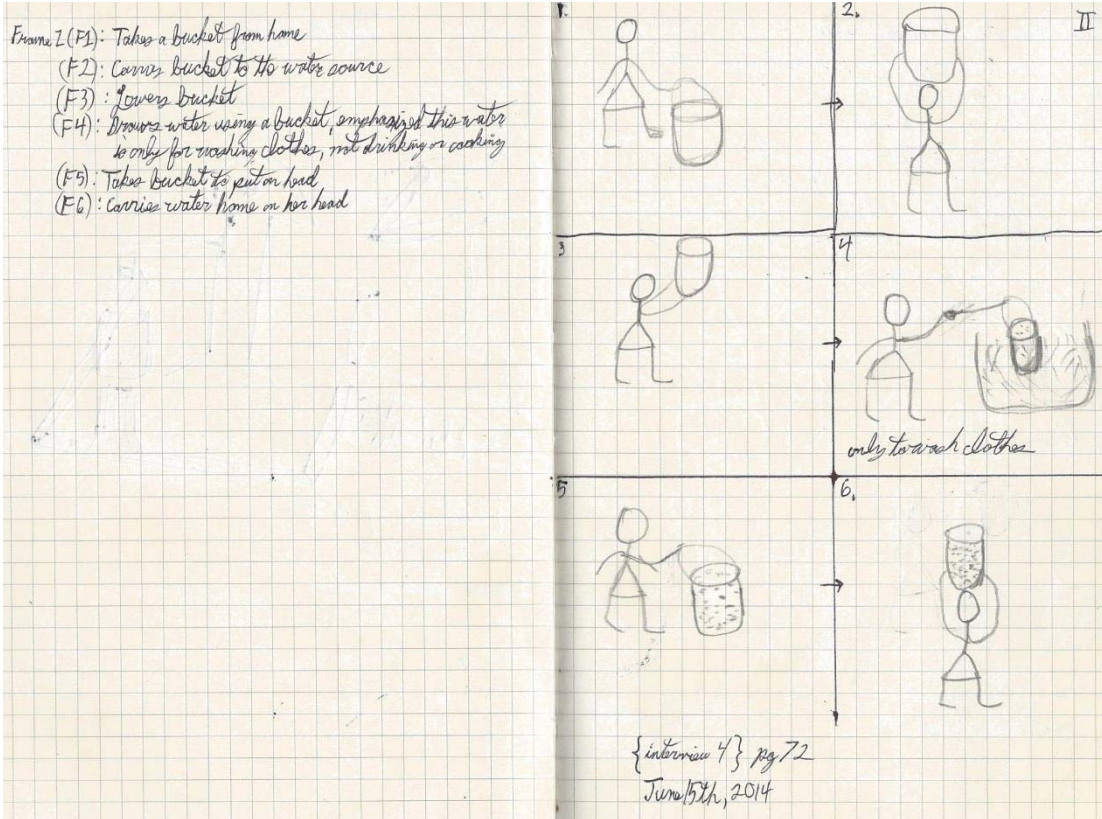 Frame 1 (F1): Takes a bucket from home
(F2): Carries bucket to the water source
(F3): Lowers bucket
(F4): Draws water using a bucket, emphasized this water
is only for washing clothes, not drinking or cooking
(F5): Takes bucket to put on head
(F6): Carries water home on her head
1.
2.
II
3
4
only to wash clothes
5
6.
{interview 4} pg 72
June 15th, 2014